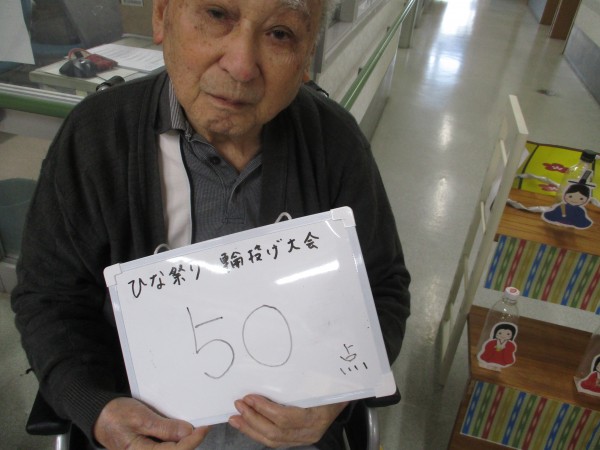 ひな祭り 輪投げ大会
50点